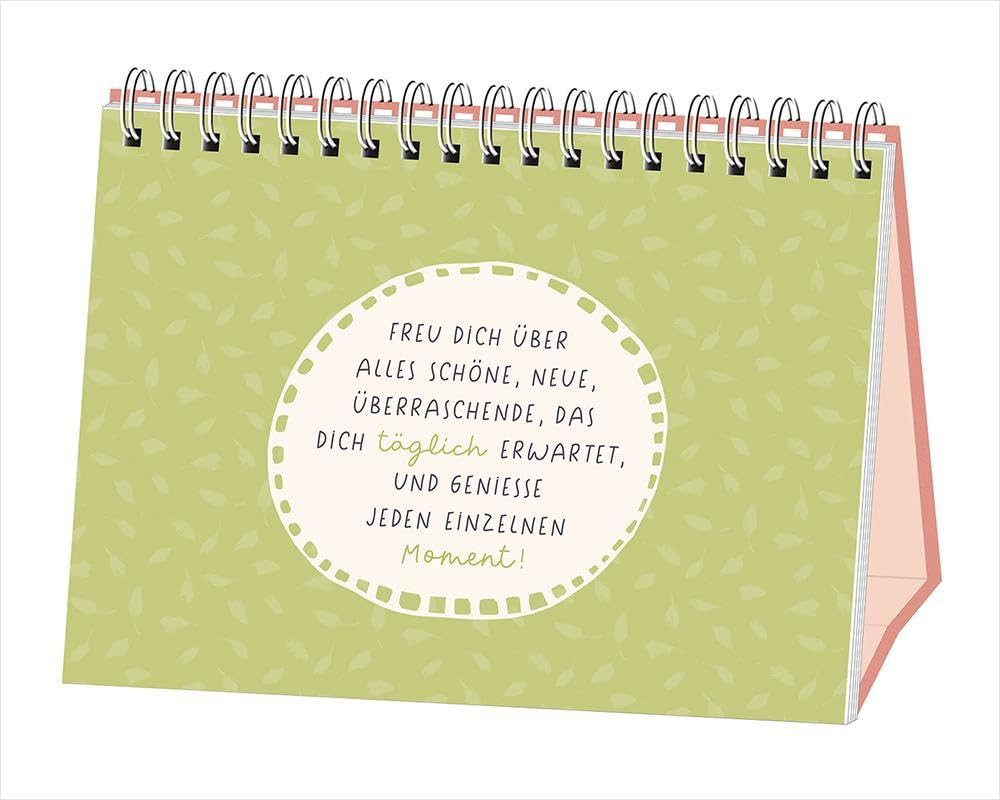 FREU DICH ÜBER
ALLES SCHÖNE, NEUE,
ÜBERRASCHENDE, DAS
DICH täglich ERWARTET,
UND GENIESSE
JEDEN EINZELNEN
Moment!